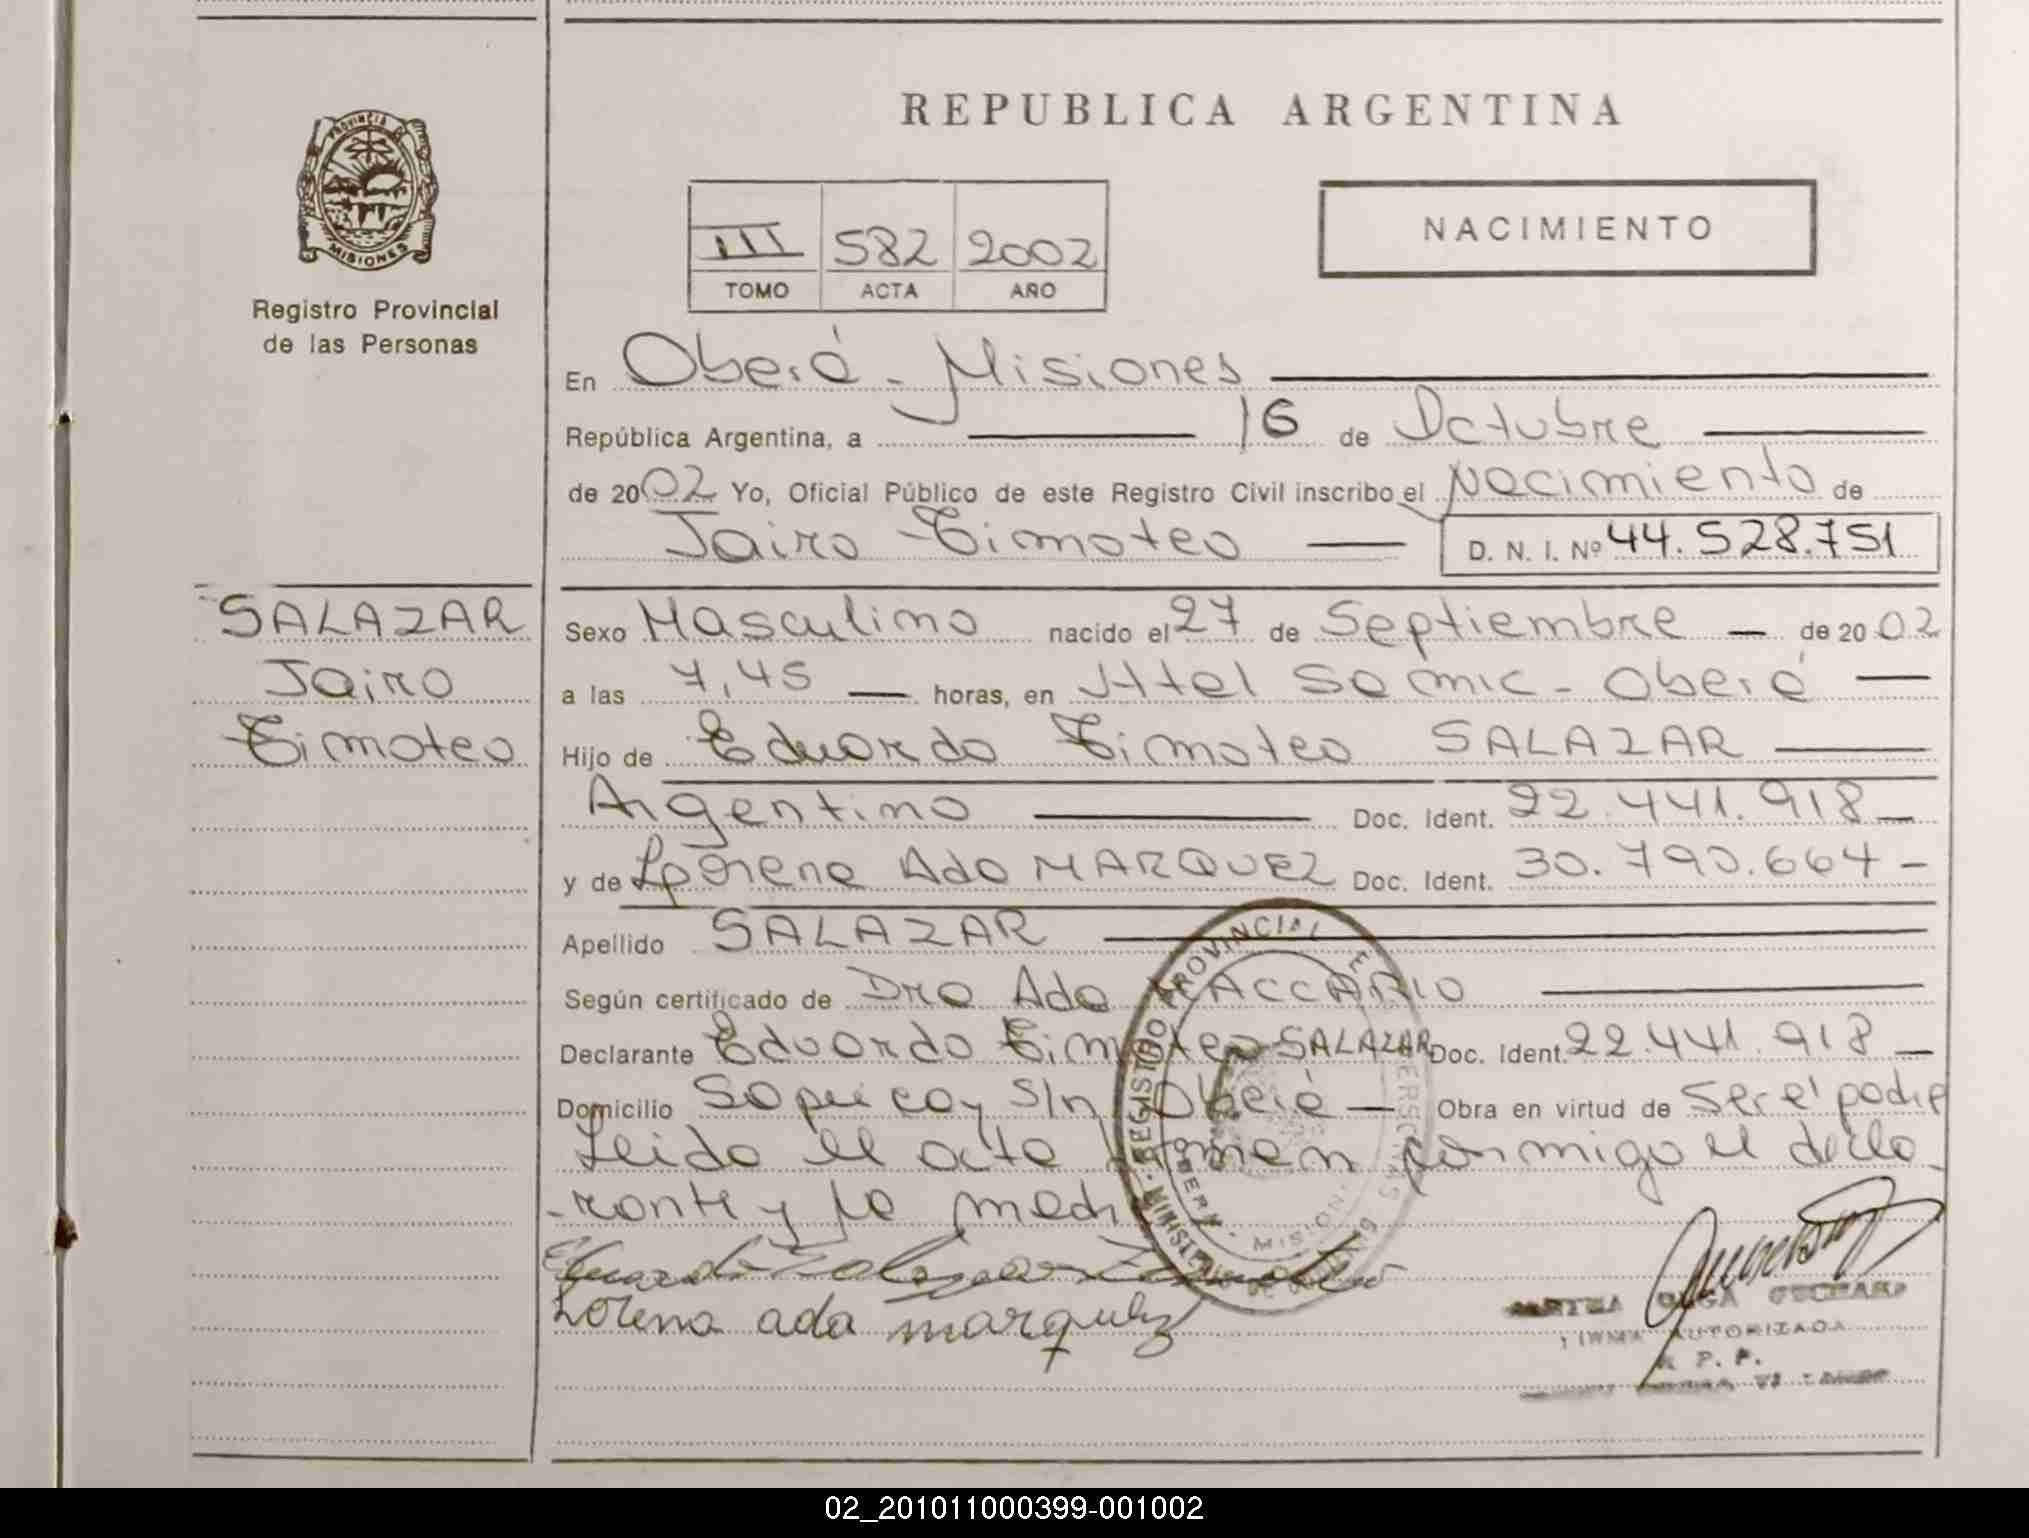 REPUBLICA ARGENTINA
PROVINCIA D
MISIONES
Registro Provincial
de las Personas
III 582 2002
TOMO ACTA AÑO
NACIMIENTO
En Oberá - Misiones
República Argentina, a 16 de Octubre
de 2002 Yo, Oficial Público de este Registro Civil inscribo el Nacimiento de
Jairo Timoteo D. N. I. Nº 44.528.751
SALAZAR
Jairo
Timoteo
Sexo Masculino nacido el 27 de Septiembre de 2002
a las 7,45 horas, en Htal Samic - Oberá
Hijo de Eduardo Timoteo SALAZAR
Argentino Doc. Ident. 22.441.918
y de Lorena Ada MARQUEZ Doc. Ident. 30.790.664
Apellido SALAZAR
Según certificado de Dra Ada
Declarante Eduardo Timoteo SALAZAR Doc. Ident. 22.441.918
Domicilio Sapucay S/n Oberá Obra en virtud de ser el padre
Leida el acta firman conmigo el decla
-rante y la madre
REGISTRO PROVINCIAL
MISIONES
Eduardo Salazar Timoteo
Lorena ada marquez
OLGA
FIRMA AUTORIZADA
R. P. P.
02_201011000399-001002